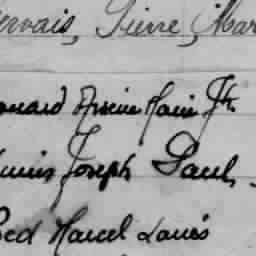 ervais, Pierre, Mar
onard Arsène Marie Jh
Joseph Paul,
red Marcel Louis